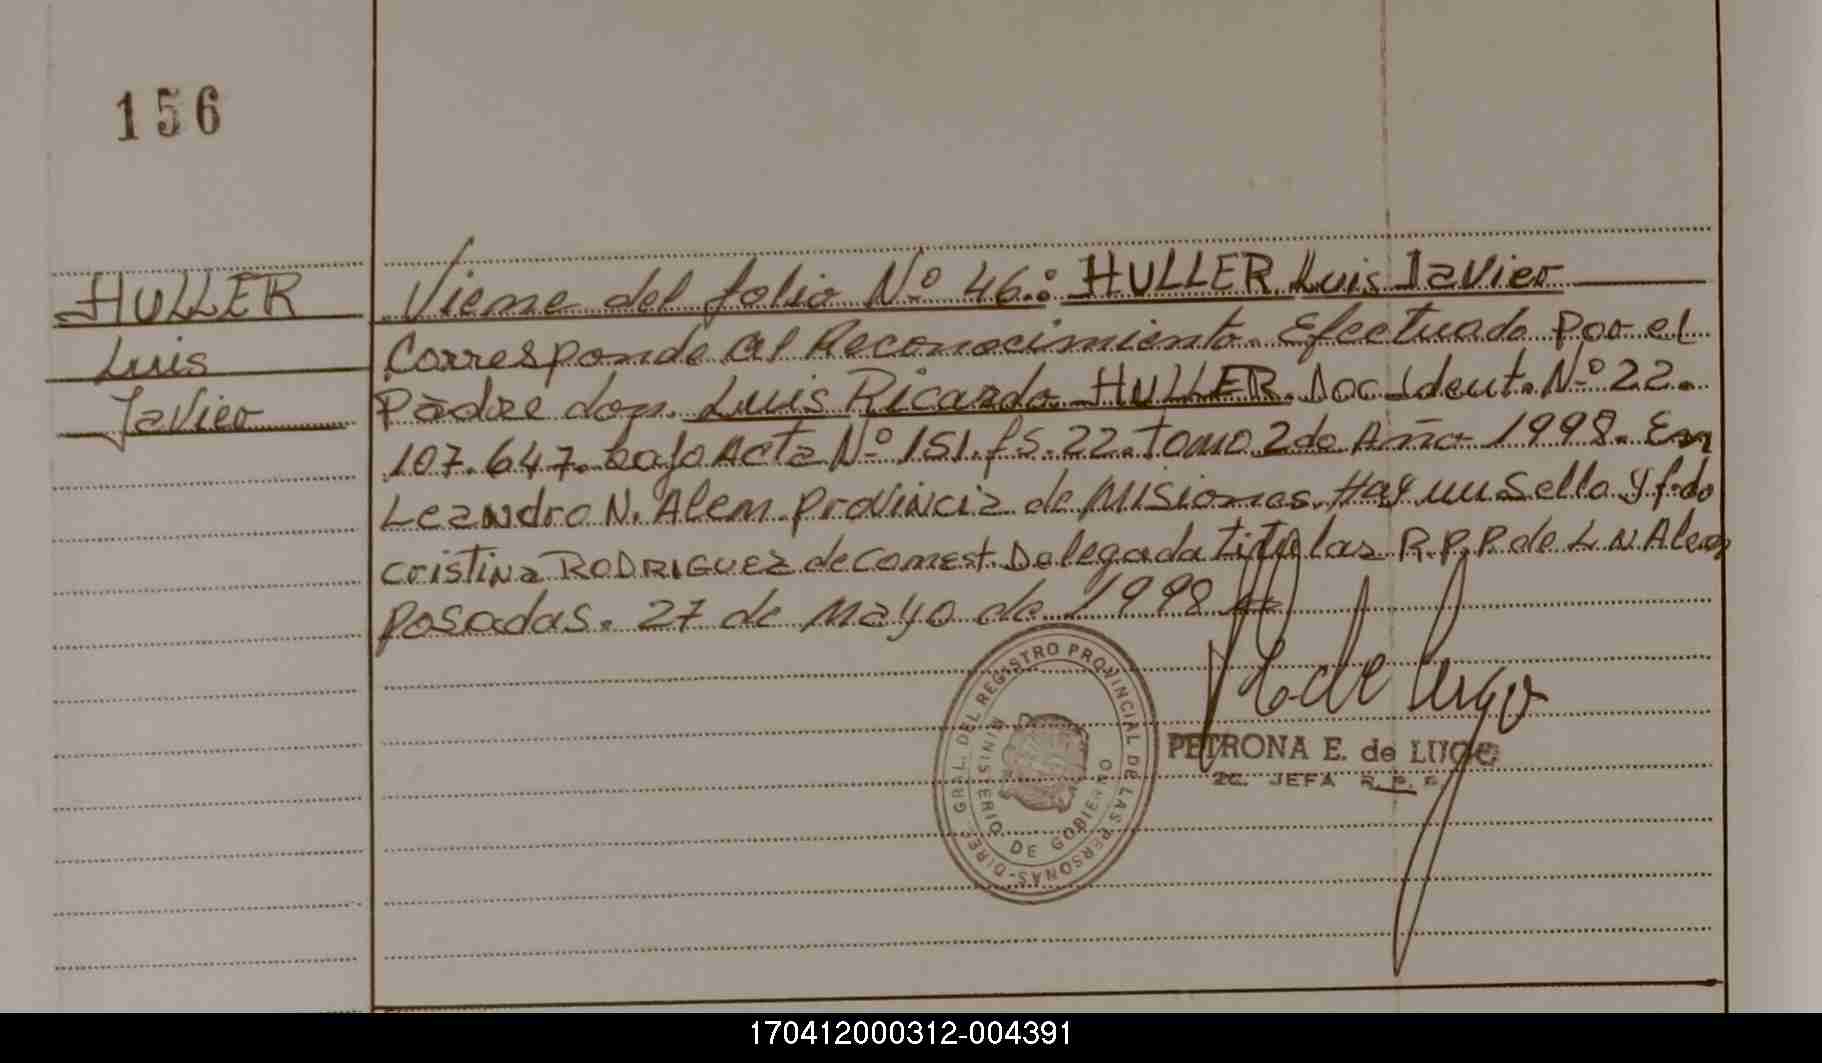 156
HULLER
Luis
Javier
Viene del folio Nº 46.: HULLER Luis Javier
Corresponde al Reconocimiento. Efectuado por el
Padre don. Luis Ricardo HULLER. Doc Ident. Nº 22.
107.647. bajo Acta Nº 151. fs. 22. Tomo 2do Año 1998. En
Leandro N. Alem. provincia de Misiones. Hay un sello y fdo
Cristina RODRIGUEZ de Comest. Delegada titular R.P.P de L N Alem
Posadas. 27 de Mayo de 1998
DIRE. GRAL. DEL REGISTRO PROVINCIAL DE LAS PERSONAS
MINISTERIO DE GOBIERNO
P E de Lugo
PETRONA E. de LUGO
JEFA R. P. P.
170412000312-004391